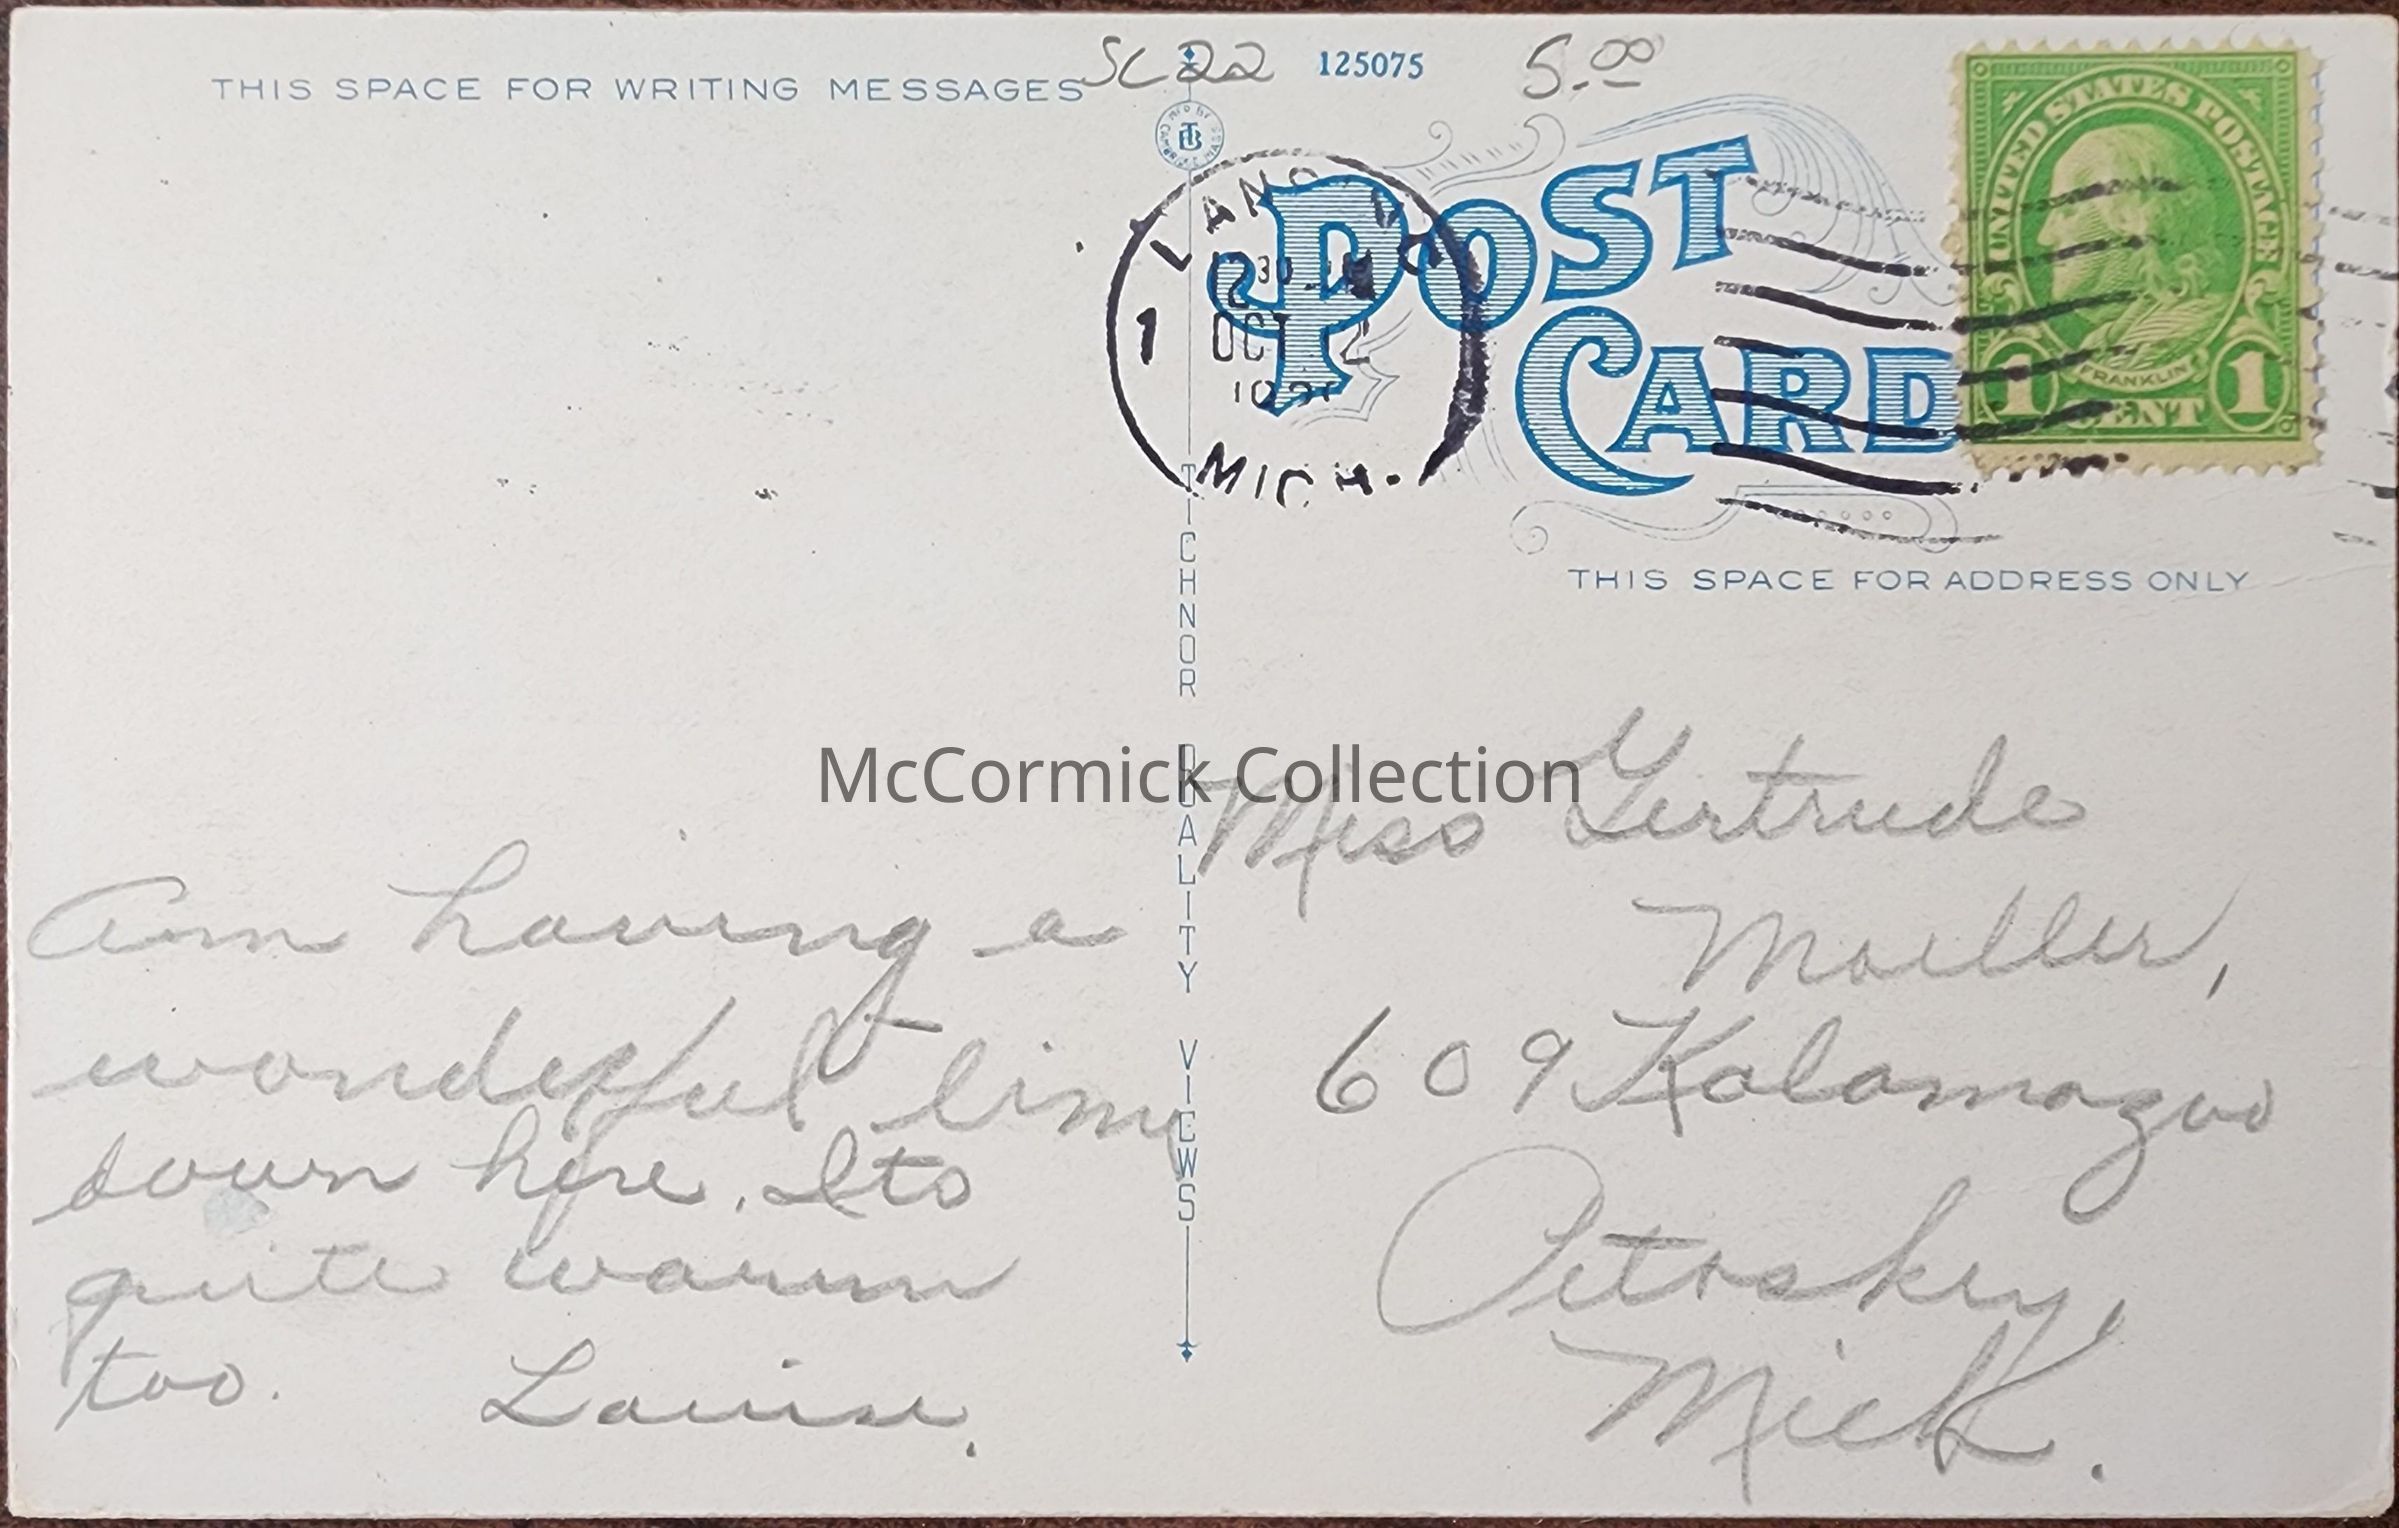 THIS SPACE FOR WRITING MESSAGES
SC22
125075
5.00
POST
CARD
UNITED STATES POSTAGE
FRANKLIN
1 CENT 1
1
OCT
MICH.
THIS SPACE FOR ADDRESS ONLY
TICHNOR QUALITY VIEWS
McCormick Collection
Am having a
wonderful time
down here. Its
quite warm
too. Louise.
Miss Gertrude
Moeller,
609 Kalamazoo
Petoskey,
Mich.